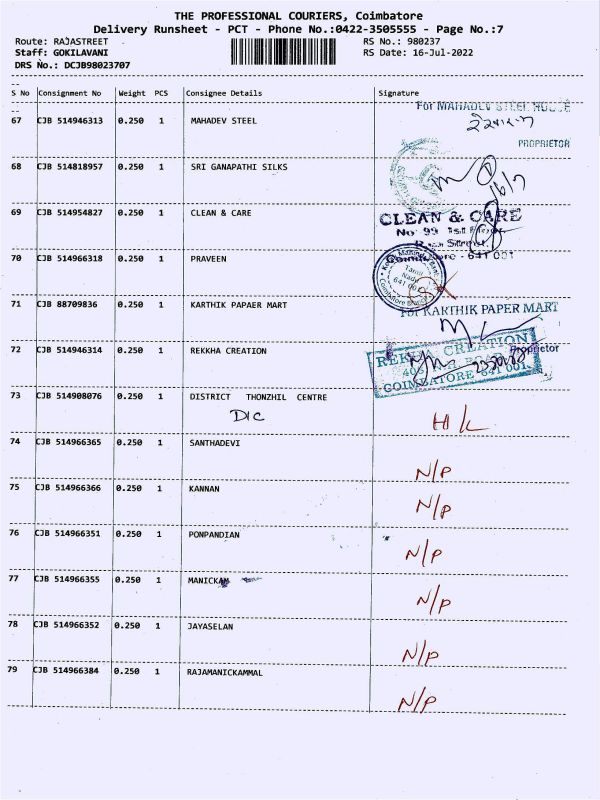 THE PROFESSIONAL COURIERS, Coimbatore
Delivery Runsheet - PCT - Phone No.:0422-3505555 - Page No.:7
Route: RAJASTREET RS No.: 980237
Staff: GOKILAVANI RS Date: 16-Jul-2022
DRS No.: DCJB98023707
S No Consignment No Weight PCS Consignee Details Signature
For MAHADEV STEEL HOUSE
67 CJB 514946313 0.250 1 MAHADEV STEEL
PROPRIETOR
68 CJB 514818957 0.250 1 SRI GANAPATHI SILKS
16/7
69 CJB 514954827 0.250 1 CLEAN & CARE
CLEAN & CARE
No 99 1st Floor
Street
Coimbatore - 641 001
70 CJB 514966318 0.250 1 PRAVEEN
Tamil
Nadu
641 001
71 CJB 88709836 0.250 1 KARTHIK PAPAER MART
For KARTHIK PAPER MART
Proprietor
72 CJB 514946314 0.250 1 REKKHA CREATION
REKHA CREATION
COIMBATORE 641 001
73 CJB 514908076 0.250 1 DISTRICT THONZHIL CENTRE
DIC
74 CJB 514966365 0.250 1 SANTHADEVI
N/P
75 CJB 514966366 0.250 1 KANNAN
N/P
76 CJB 514966351 0.250 1 PONPANDIAN
N/P
77 CJB 514966355 0.250 1 MANICKAM
N/P
78 CJB 514966352 0.250 1 JAYASELAN
N/P
79 CJB 514966384 0.250 1 RAJAMANICKAMMAL
N/P